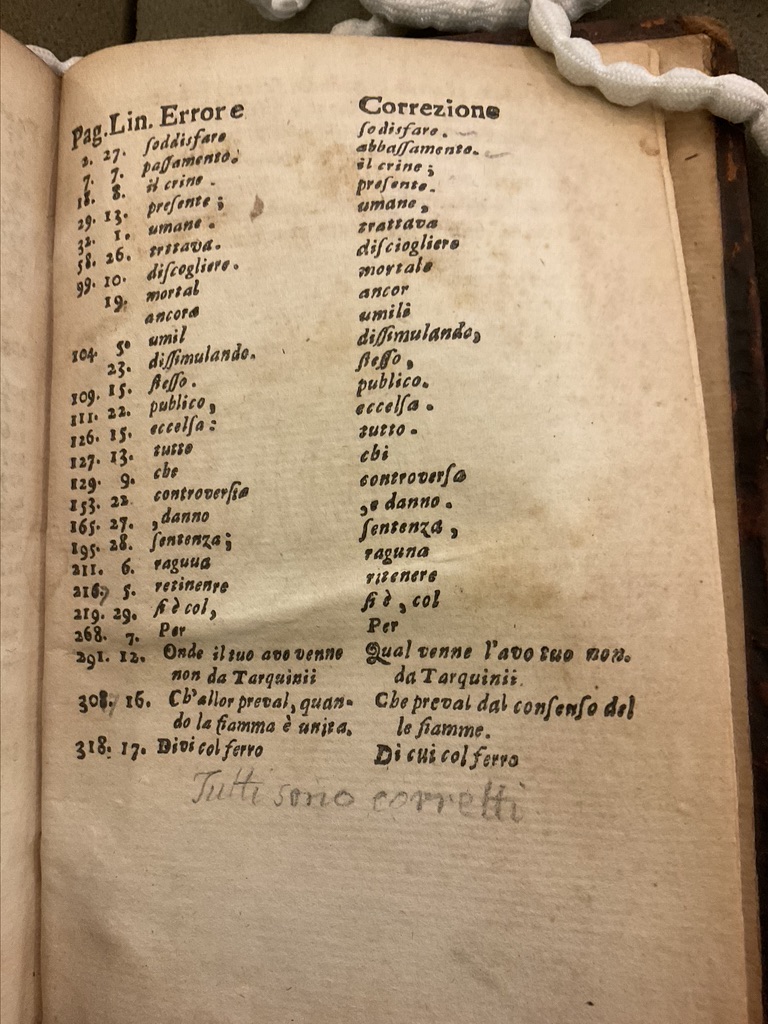 Pag. Lin. Errore Correzione
2. 27. ſoddisfare ſodisfare.
7. 7. paſſamento. abbaſſamento.
18. 8. il crine. il crine;
29. 13. preſente; preſente.
32. 1. umane. umane,
58. 26. trttava. trattava
99. 10. diſcogliere. diſciogliere
19. mortal mortale
ancora ancor
104. 5. umil umile
23. diſſimulando. diſſimulando,
109. 15. ſteſſo. ſteſſo,
111. 22. publico, publico.
126. 15. eccelſa: eccelſa.
127. 13. tutto tutto.
129. 9. che chi
153. 22. controverſia controverſa
165. 27. ,danno ,e danno.
195. 28. ſentenza; ſentenza,
211. 6. raguua raguna
216. 5. retinenre ritenere
219. 29. ſi è col, ſi è, col
268. 7. Per Per
291. 12. Onde il tuo avo venne Qual venne l'avo tuo non.
non da Tarquinii da Tarquinii.
308. 16. Ch'allor preval, quan- Che preval dal conſenſo del
do la fiamma è unita. le fiamme.
318. 17. Divi col ferro Di cui col ferro
Tutti sono corretti